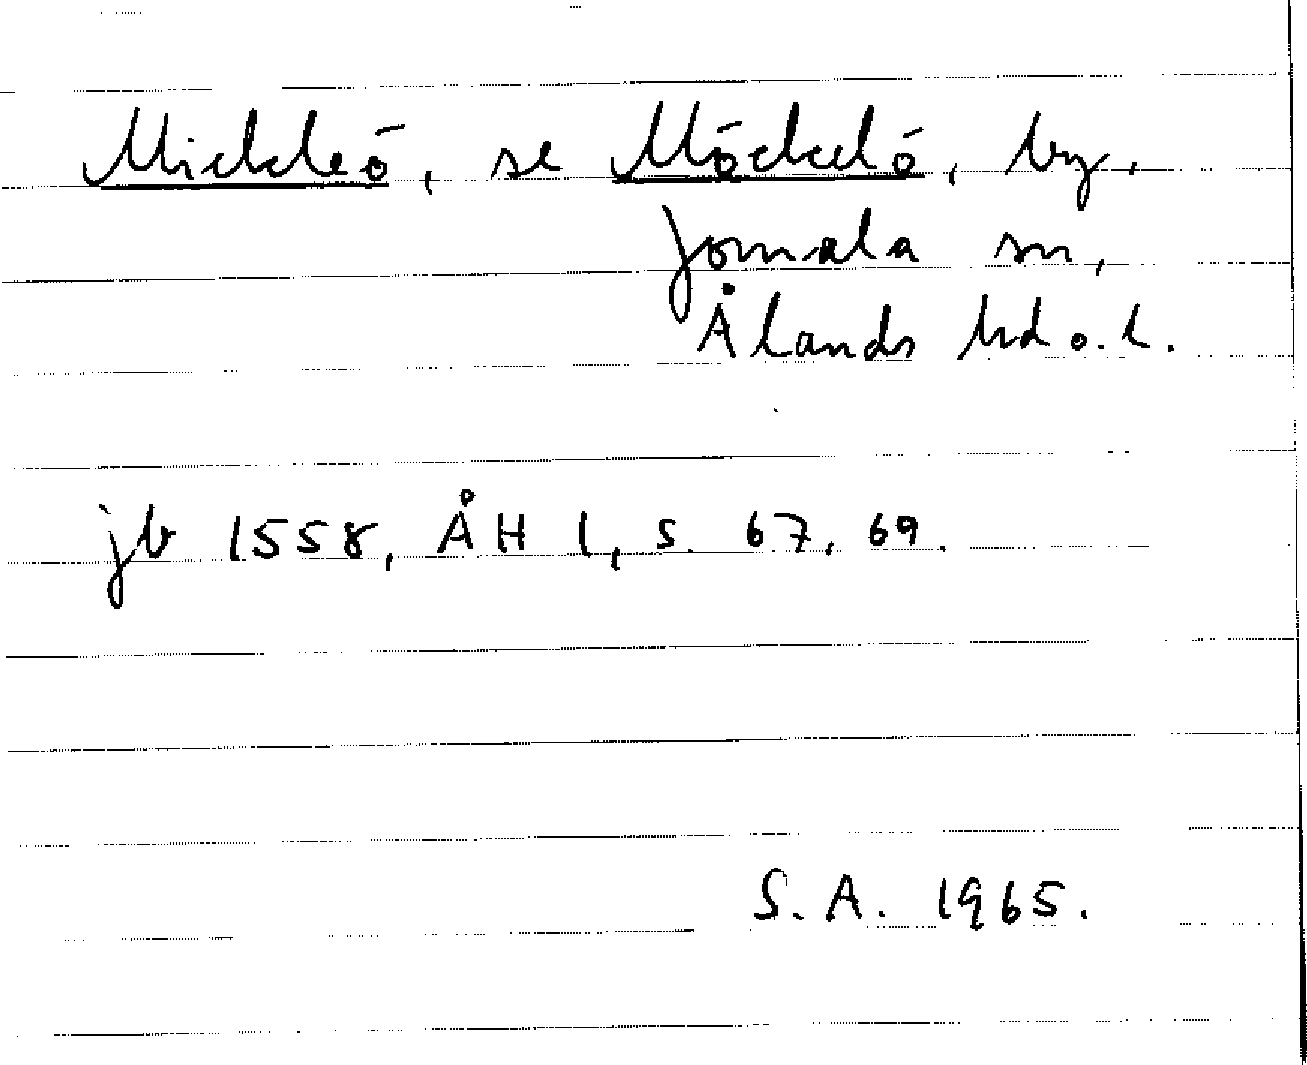 Mickleö, se Möckelö, by,
Jomala sn,
Ålands hd o. l.
jb 1558, ÅH 1, s. 67, 69.
S. A. 1965.